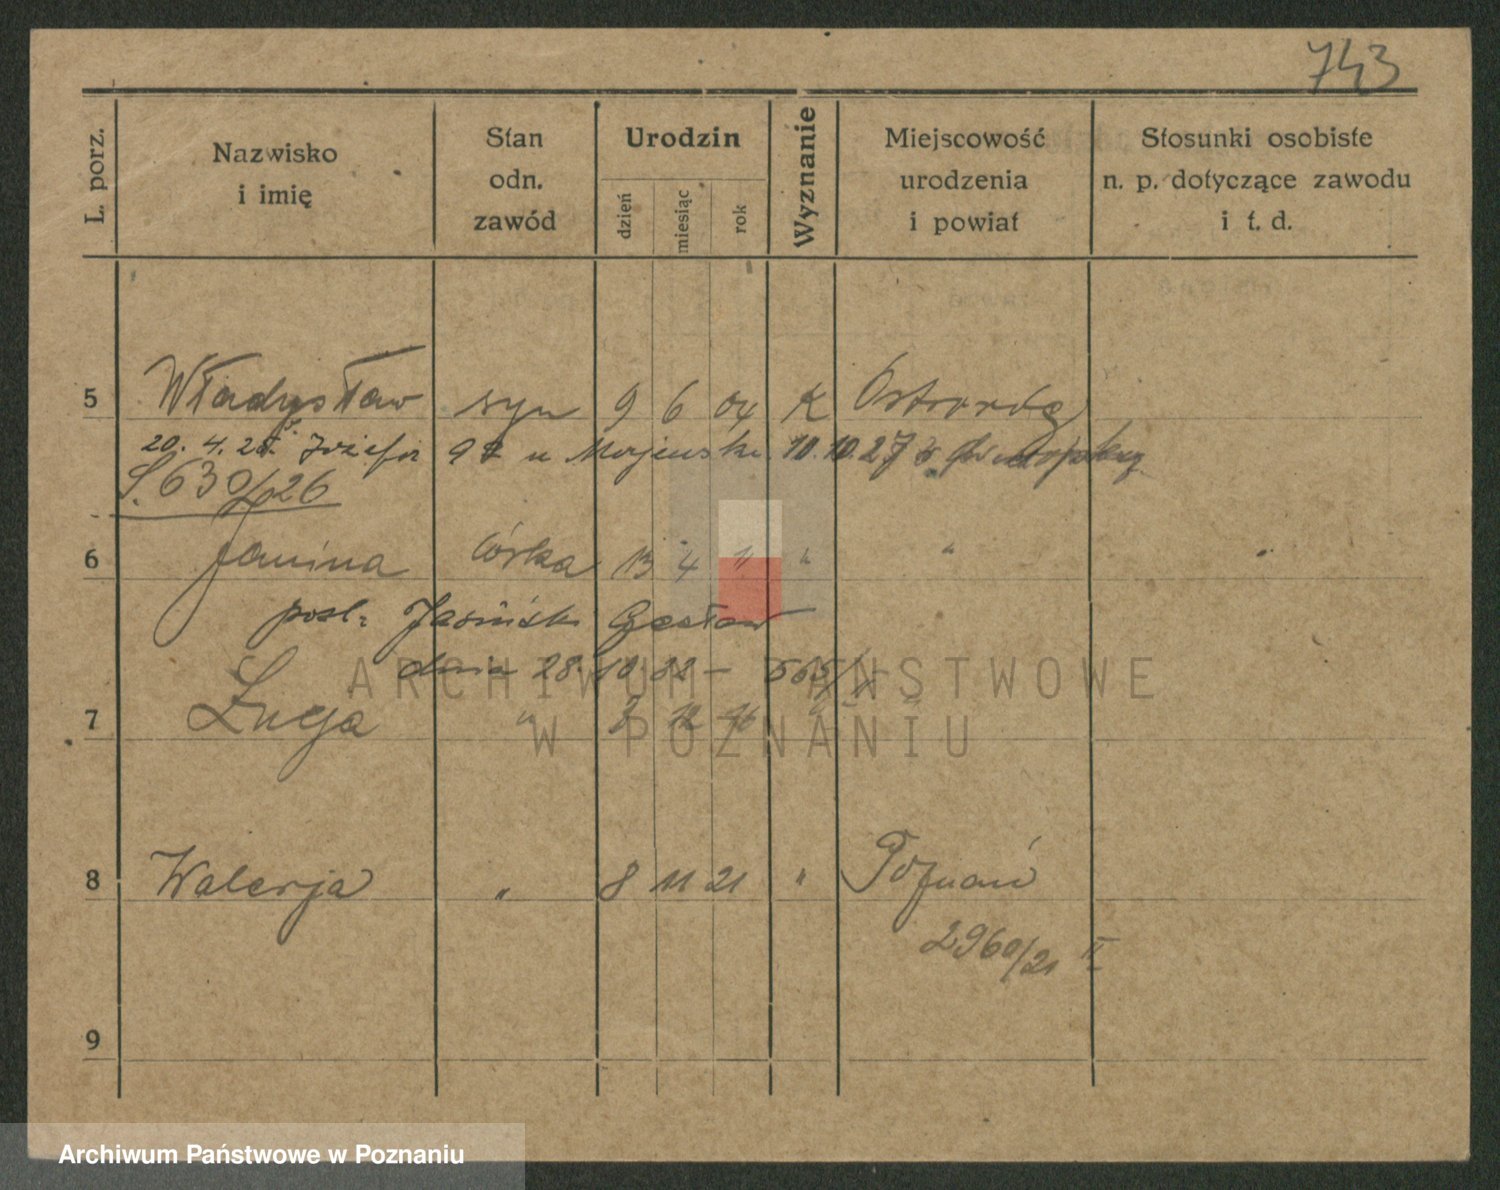 743
L. porz.
Nazwisko i imię
Stan odn. zawód
Urodzin
dzień
miesiąc
rok
Wyznanie
Miejscowość urodzenia i powiat
Stosunki osobiste n. p. dotyczące zawodu i t. d.
5 Władysław syn 9 6 04 K Ostroróg
20. 4. 25. Józefa u 10. 10. 27
S. 630/26
6 Janina córka 13 4 11 " "
posl. Jasiński Czesław
dnia 28. 10 32 –
7 Łucja " 12 16 " "
8 Walerja " 8 11 21 " Poznań
2960/21 II
9
ARCHIWUM PAŃSTWOWE
W POZNANIU
Archiwum Państwowe w Poznaniu